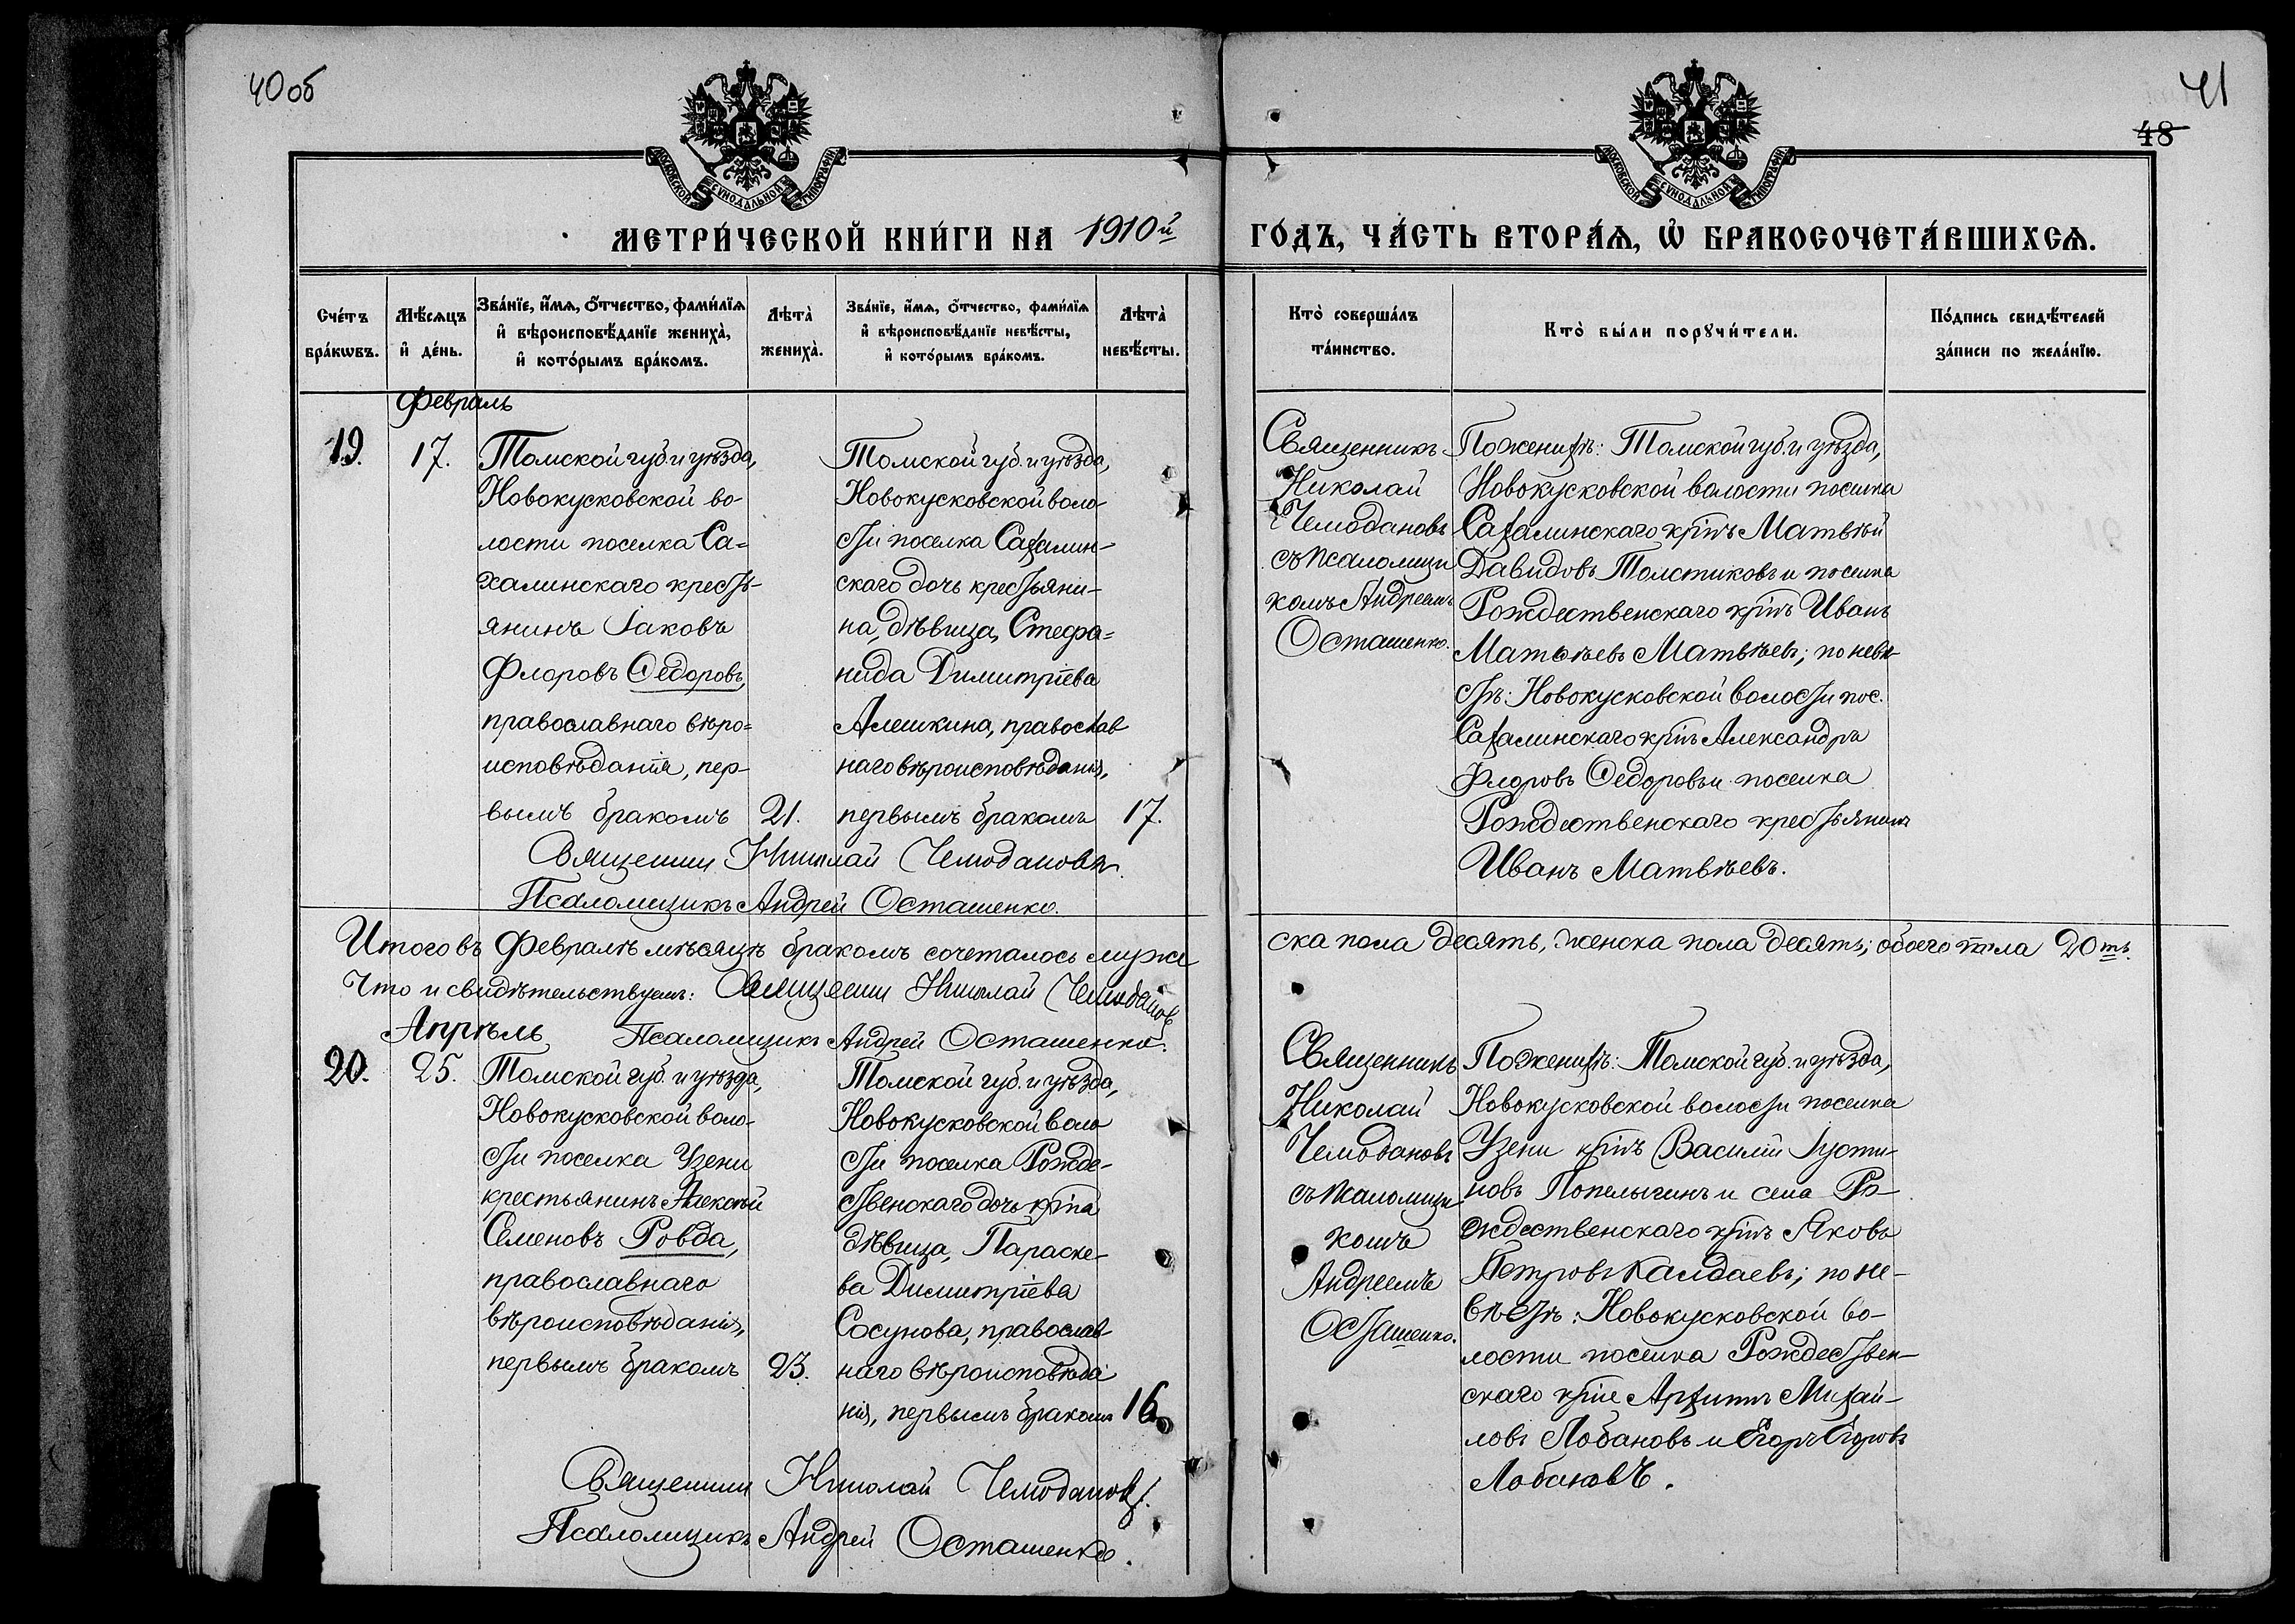 40об
41
48
МОСКОВСКОЙ СѴНОДАЛЬНОЙ ТИПОГРАФІИ
МОСКОВСКОЙ СѴНОДАЛЬНОЙ ТИПОГРАФІИ
МЕТРИ́ЧЕСКОЙ КНИ́ГИ НА 1910й
ГО́ДЪ, ЧА́СТЬ ВТОРА́Ѧ, Ѡ҆ БРАКОСОЧЕТА́ВШИХСѦ.
Сче́тъ
бра́кѡвъ.
Мѣ́сѧцъ
и҆ де́нь.
Зва́нїе, и҆́мѧ, ѻ҆́тчество, фами́лїѧ
и҆ вѣроисповѣ́данїе жениха̀,
и҆ кото́рымъ бра́комъ.
Лѣта̀
жениха̀.
Зва́нїе, и҆́мѧ, ѻ҆́тчество, фами́лїѧ
и҆ вѣроисповѣ́данїе невѣ́сты,
и҆ кото́рымъ бра́комъ.
Лѣта̀
невѣ́сты.
Кто̀ соверша́лъ
та́инство.
Кто̀ бы́ли порꙋчи́тели.
По́дпись свидѣ́телей
за́писи по жела́нїю.
Февраль
19.
17.
Томской губ. и уѣзда,
Новокусковской во-
лости поселка Са=
халинскаго кресть-
янинъ Іаковъ
Флоровъ Ѳедоровъ,
православнаго вѣро=
исповѣданія, пер-
вымъ бракомъ
21.
Томской губ. и уѣзда,
Новокусковской воло-
сти поселка Сахалин-
скаго дочь крестьяни-
на, дѣвица, Стефа=
нида Димитріева
Алешкина, православ
наго вѣроисповѣданія,
первымъ бракомъ
17.
Священникъ
Николай
Чемодановъ
съ псаломщи
комъ Андреемъ
Осташенко.
По женихѣ: Томской губ. и уѣзда,
Новокусковской волости поселка
Сахалинскаго кр͠нъ Матвѣй
Давидовъ Толстиковъ и поселка
Рождественскаго кр͠нъ Иванъ
Матвѣевъ Матвѣевъ; по невѣ-
стѣ: Новокусковской волости пос.
Сахалинскаго кр͠нъ Александръ
Флоровъ Ѳедоровъ и поселка
Рождественскаго крестьянинъ
Иванъ Матвѣевъ.
Священник Николай Чемодановъ.
Псаломщикъ Андрей Осташенко.
Итого въ Февралѣ мѣсяцѣ бракомъ сочеталось муже
ска пола десять, женска пола десять; обоего пола 20ть.
Что и свидѣтельствуемъ: Священник Николай Чемоданов
Псаломщикъ Андрей Осташенко.
Апрѣль
20.
25.
Томской губ. и уѣзда,
Новокусковской воло-
сти поселка Узени
крестьянинъ Алексѣй
Семеновъ Ровда,
православнаго
вѣроисповѣданія,
первымъ бракомъ
23.
Томской губ. и уѣзда,
Новокусковской воло
сти поселка Рожде-
ственскаго дочь кр͠на
дѣвица, Параске-
ва Димитріева
Сосунова, православ-
наго вѣроисповѣда
нія, первымъ бракомъ
16
Священникъ
Николай
Чемодановъ
съ псаломщи
комъ
Андреемъ
Осташенко.
По женихѣ: Томской губ. и уѣзда,
Новокусковской волости поселка
Узени кр͠нъ Василій Іусти-
новъ Попелыгинъ и села Ро-
ждественскаго кр͠нъ Яковъ
Петровъ Калдаевъ; по не-
вѣстѣ: Новокусковской во-
лости поселка Рождествен-
скаго кр͠не Архипъ Михай-
ловъ Лобановъ и Егоръ Егоровъ
Лобановъ.
Священник Николай Чемодановъ.
Псаломщикъ Андрей Осташенко.